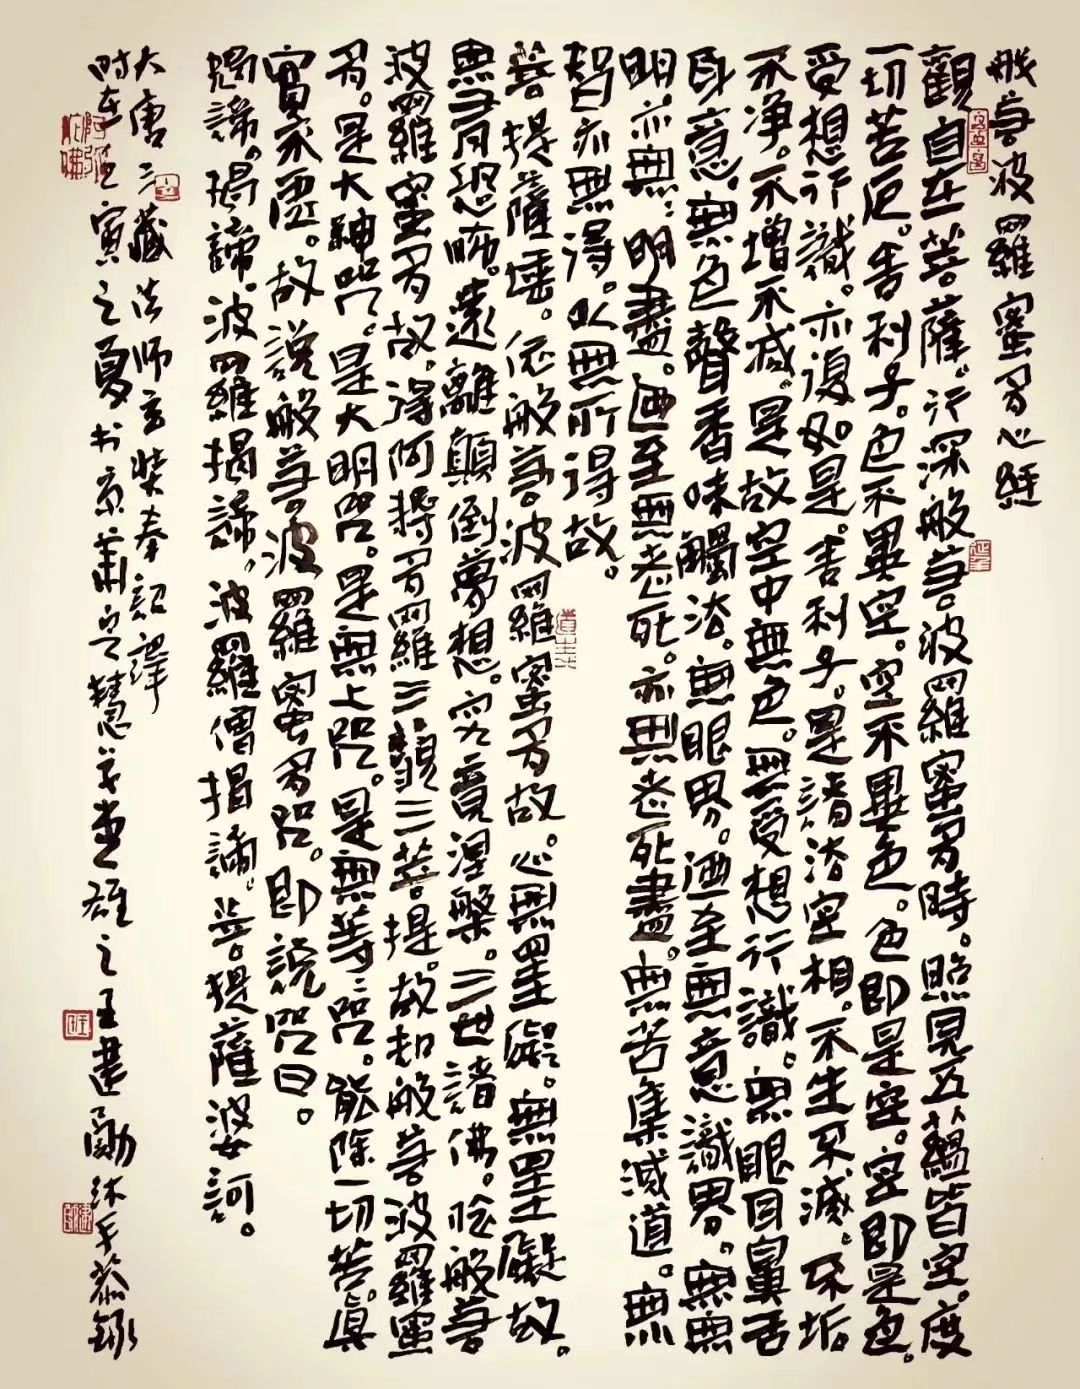 般若波羅蜜多心經
觀自在菩薩。行深般若波羅蜜多時。照見五蘊皆空。度
一切苦厄。舍利子。色不異空。空不異色。色即是空。空即是色。
受想行識。亦復如是。舍利子。是諸法空相。不生不滅。不垢
不净。不增不减。是故空中無色。無受想行識。無眼耳鼻舌
身意。無色聲香味觸法。無眼界。迺至無意識界。無無
明。亦無無明盡。迺至無老死。亦無老死盡。無苦集滅道。無
智亦無得。以無所得故。
菩提薩埵。依般若波羅蜜多故。心無罣礙。無罣礙故。
無有恐怖。遠離顛倒夢想。究竟涅槃。三世諸佛。依般若
波羅蜜多故。得阿耨多羅三藐三菩提。故知般若波羅蜜
多。是大神咒。是大明咒。是無上咒。是無等等咒。能除一切苦。真
實不虛。故說般若波羅蜜多咒。即說咒曰。
揭諦。揭諦。波羅揭諦。波羅僧揭諦。菩提薩婆訶。
大唐三藏法師玄奘奉詔譯
時在壬寅之夏於京華 慧 堂 雄之王建勛沐手恭錄
道生
阿彌陀佛